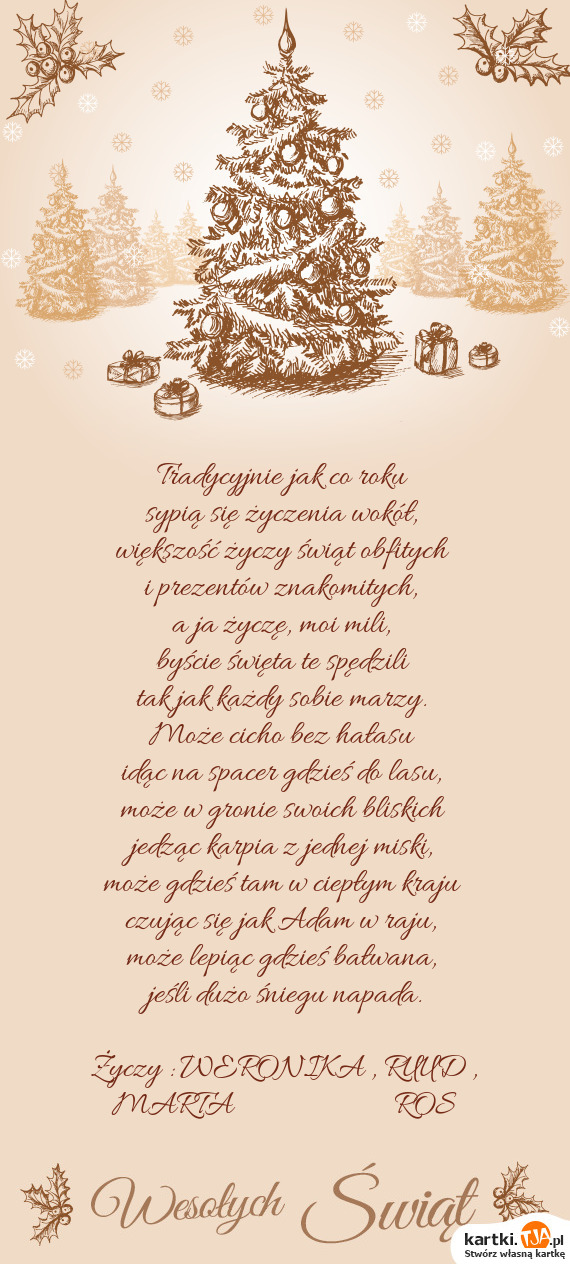 Tradycyjnie jak co roku
sypią się życzenia wokół,
większość życzy świąt obfitych
i prezentów znakomitych,
a ja życzę, moi mili,
byście święta te spędzili
tak jak każdy sobie marzy.
Może cicho bez hałasu
idąc na spacer gdzieś do lasu,
może w gronie swoich bliskich
jedząc karpia z jednej miski,
może gdzieś tam w ciepłym kraju
czując się jak Adam w raju,
może lepiąc gdzieś bałwana,
jeśli dużo śniegu napada.
Życzy : WERONIKA , RUUD ,
MARTA ROS
Wesołych Świąt
kartki.TJA.pl
Stwórz własną kartkę